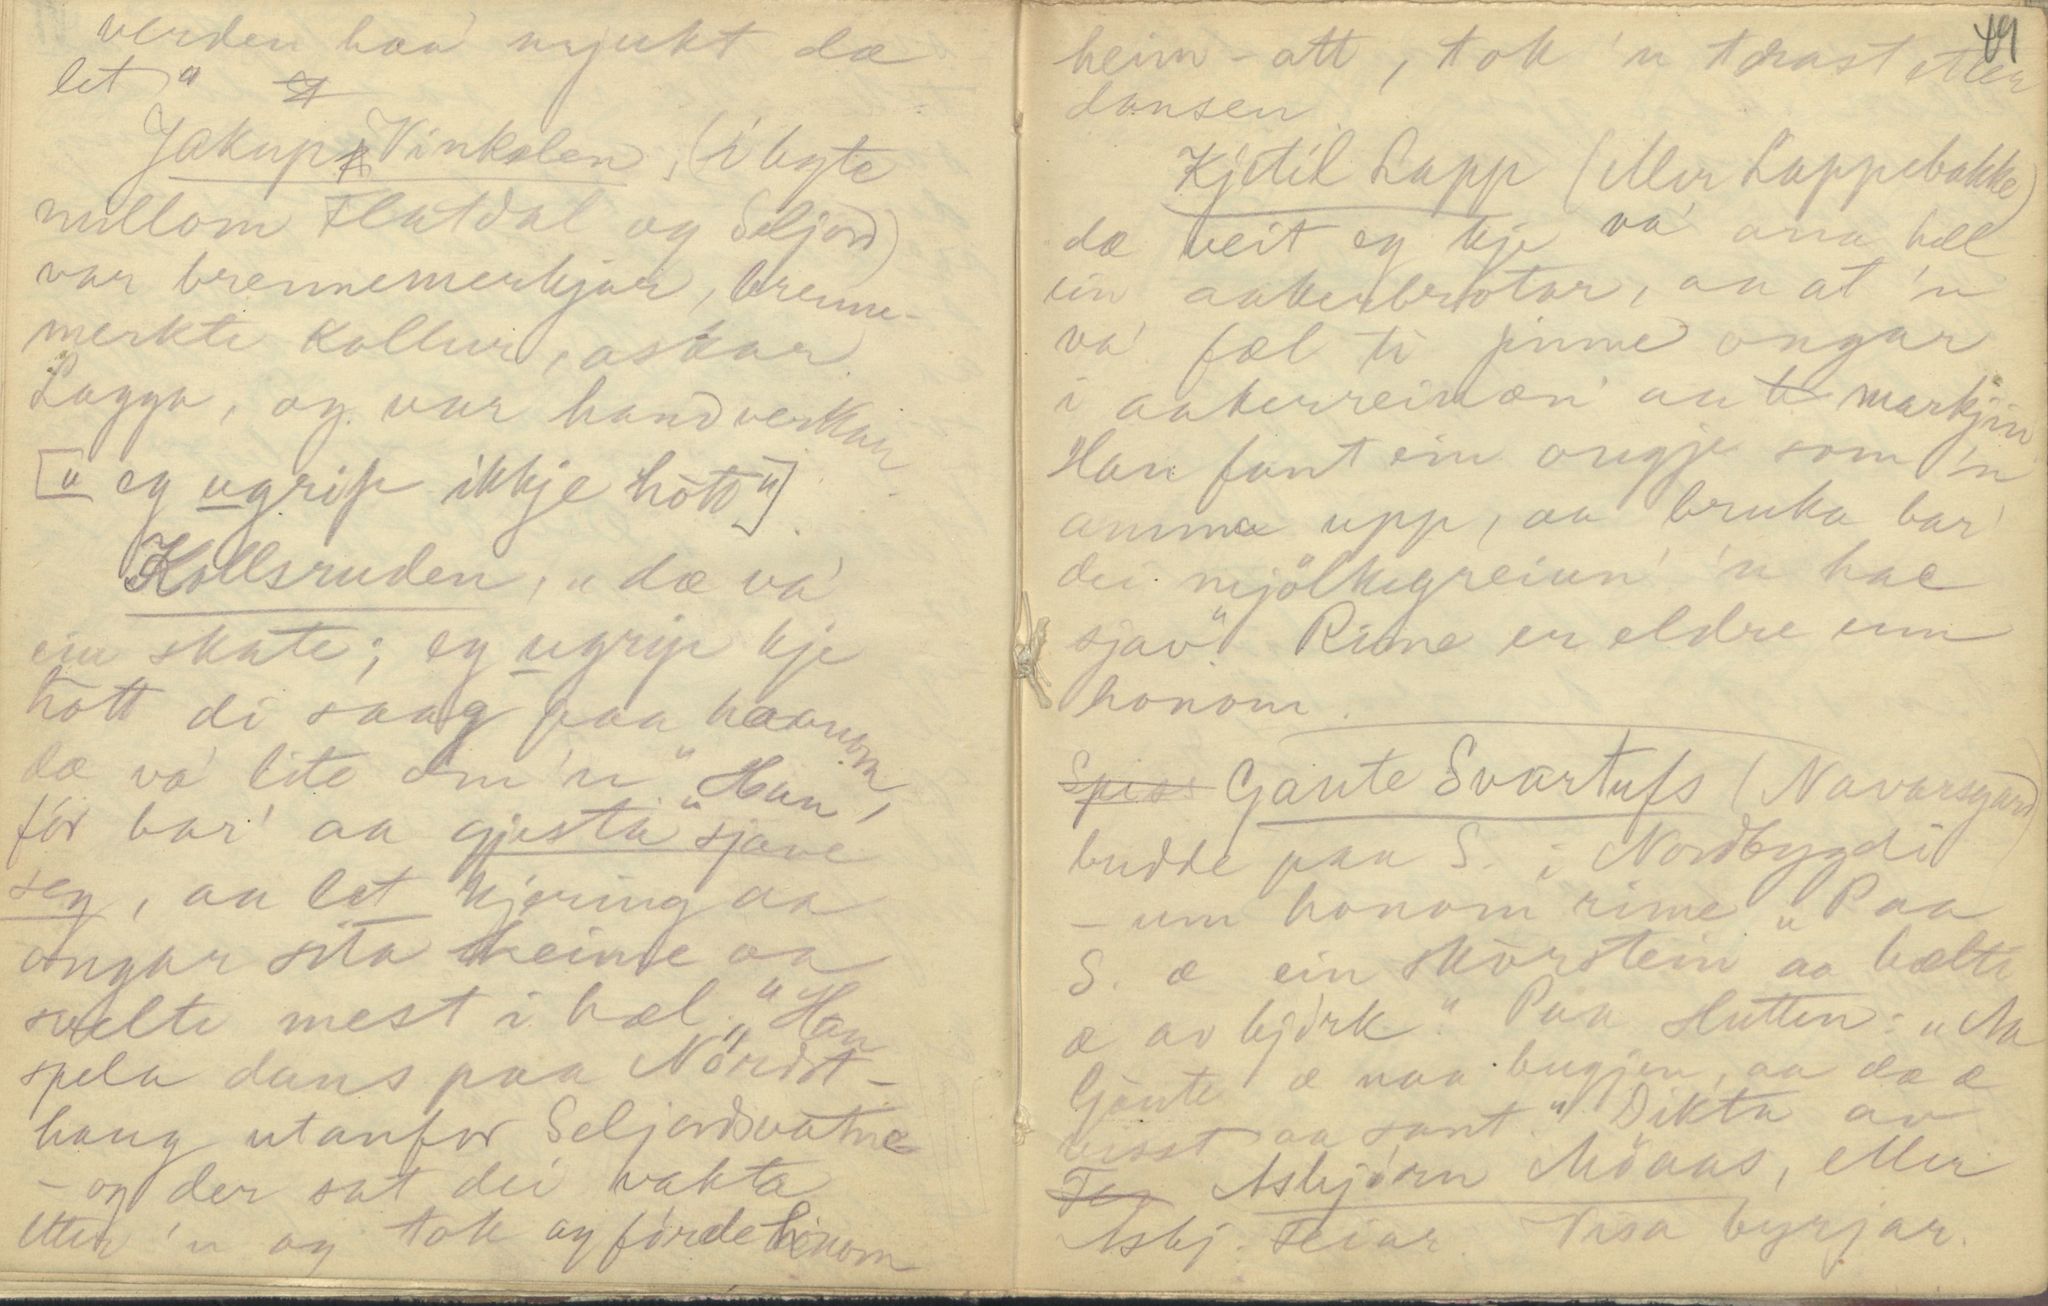 verden haa' mjukt dæ
let"
Jakup Vinkelen, (i byte
millom Flatdal og Seljord)
var brennemerkjar, brenne-
merkte kollur, askar
Lagga, og var handverkar
["eg ugrip ikkje hott"]
Kollsruden, "dæ va'
ein skate; eg ugrip kje
hott di saag paa haanom,
dæ va' lite om 'n" Han
fór bar' aa "gjesta sjave
seg, aa let kjering aa
ongar sita heime aa
svelte mest i hæl." "Han
spela dans paa Nordst-
haug utanfor Seljordsvatne
- og der sat dei vakta
etter 'n og tok og förde honom
49
heim-att, tok 'n tvrast etter
dansen
Kjetil Lapp (eller Lappebakke)
dæ veit eg kje va' ana hell
ein aakerbrotar, aa at 'n
va' fæl ti finne ongar
i aakerreinæn' aa markjin
Han fant ein ongje som 'n
amma upp, aa bruka bar'
dei mjölkegreiun' 'n hae
sjav" Rime er eldre enn
honom.
Spiss Gaute Svartufs (Navarsgard)
budde paa S. i Nordbygdi
- um honom rime "Paa
S. æ ein skorstein aa bælte
æ av bjórk". Paa Hutten: "Aa
Gaute æ naa bugjen, aa dæ æ
visst aa sant." Dikta av
Asbjörn Möaas, eller
Asbj. Teiar. Visa byrjar.